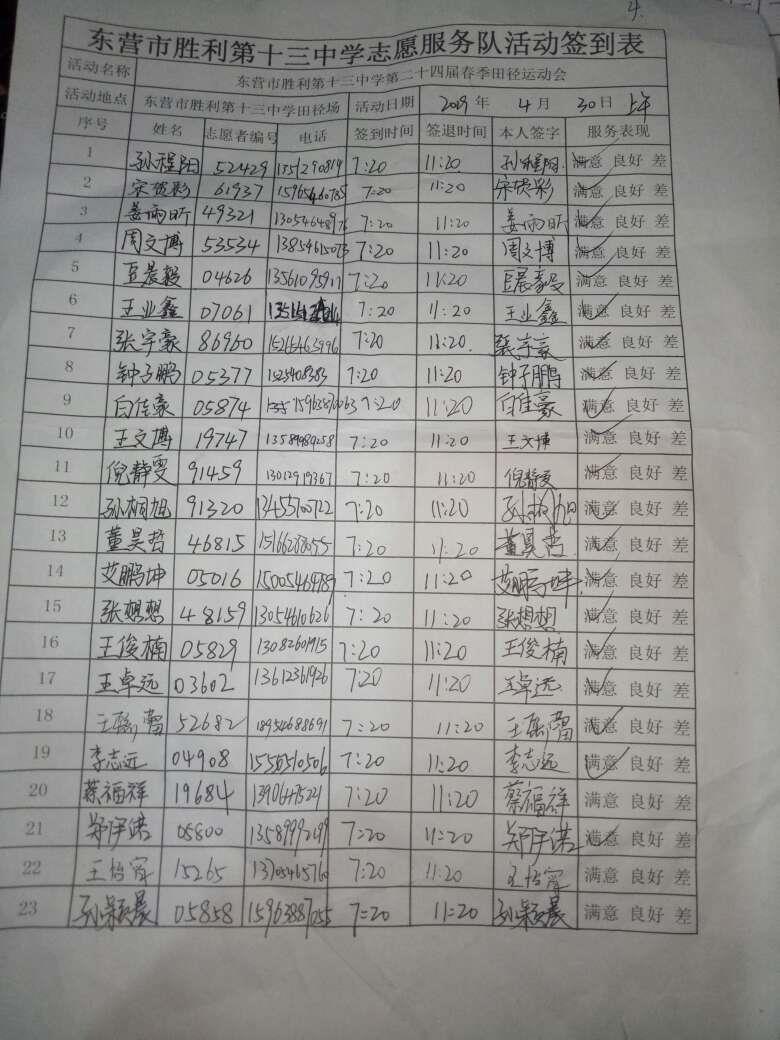 4.
东营市胜利第十三中学志愿服务队活动签到表
活动名称 东营市胜利第十三中学第二十四届春季田径运动会
活动地点 东营市胜利第十三中学田径场 活动日期 2019 年 4 月 30 日 上午
序号 姓名 志愿者编号 电话 签到时间 签退时间 本人签字 服务表现
1 孙程阳 52429 1351290819 7:20 11:20 孙程阳 满意 良好 差
2 宋贺彩 61937 7:20 11:20 宋贺彩 满意 良好 差
3 姜雨昕 49321 7:20 11:20 姜雨昕 满意 良好 差
4 周文博 53534 13854615073 7:20 11:20 周文博 满意 良好 差
5 04626 13561095917 7:20 11:20 满意 良好 差
6 王业鑫 07061 7:20 11:20 王业鑫 满意 良好 差
7 张宇豪 86960 7:20 11:20 张宇豪 满意 良好 差
8 钟子鹏 05377 7:20 11:20 钟子鹏 满意 良好 差
9 白佳豪 05874 7:20 11:20 白佳豪 满意 良好 差
10 王文博 19747 13589989258 7:20 11:20 王文博 满意 良好 差
11 倪静雯 91459 13012919367 7:20 11:20 倪静雯 满意 良好 差
12 孙桐旭 91320 13455700722 7:20 11:20 满意 良好 差
13 董昊哲 46815 7:20 11:20 董昊哲 满意 良好 差
14 艾鹏坤 05016 15005469789 7:20 11:20 艾鹏坤 满意 良好 差
15 张想想 48159 13054610626 7:20 11:20 张想想 满意 良好 差
16 王俊楠 05829 13082601915 7:20 11:20 王俊楠 满意 良好 差
17 王卓远 03602 13612361926 7:20 11:20 王卓远 满意 良好 差
18 52682 18954688691 7:20 11:20 满意 良好 差
19 李志远 04908 15550510506 7:20 11:20 李志远 满意 良好 差
20 蔡福祥 19684 7:20 11:20 蔡福祥 满意 良好 差
21 郑伊诺 05800 7:20 11:20 郑伊诺 满意 良好 差
22 王怡宵 15265 13705465760 7:20 11:20 王怡宵 满意 良好 差
23 孙颖晨 05858 15963887055 7:20 11:20 孙颖晨 满意 良好 差